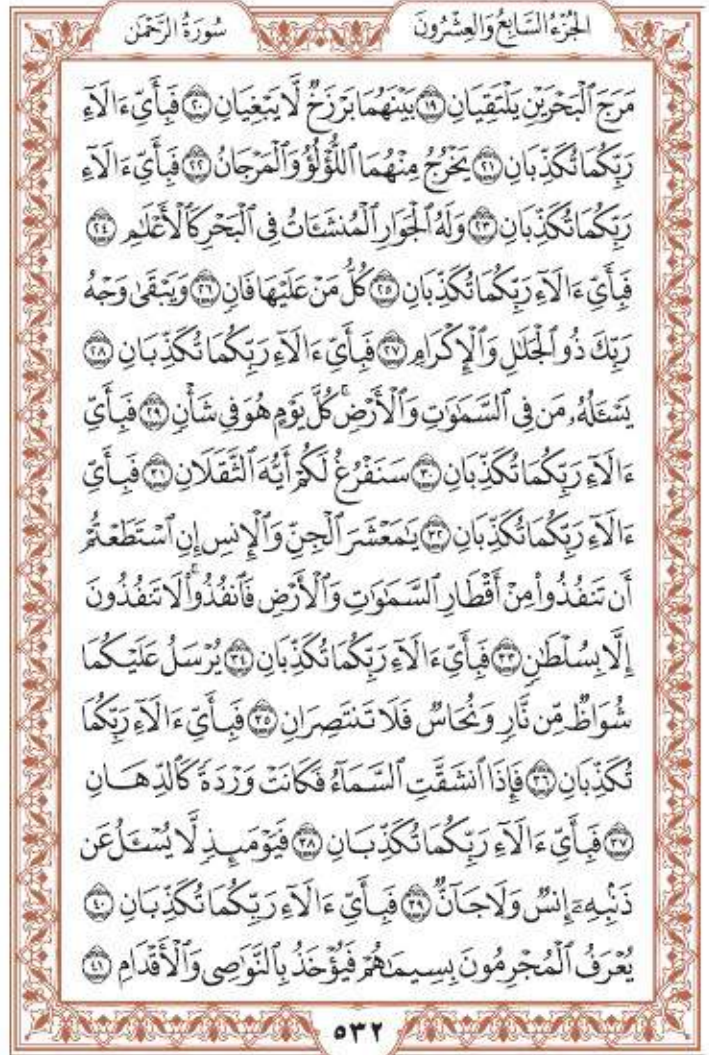 الجُزْءُ السَّابِعُ وَالعِشْرُونَ سُورَةُ الرَّحْمَٰن
مَرَجَ ٱلْبَحْرَيْنِ يَلْتَقِيَانِ ١٩ بَيْنَهُمَا بَرْزَخٌ لَّا يَبْغِيَانِ ٢٠ فَبِأَيِّ ءَالَآءِ
رَبِّكُمَا تُكَذِّبَانِ ٢١ يَخْرُجُ مِنْهُمَا ٱللُّؤْلُؤُ وَٱلْمَرْجَانُ ٢٢ فَبِأَيِّ ءَالَآءِ
رَبِّكُمَا تُكَذِّبَانِ ٢٣ وَلَهُ ٱلْجَوَارِ ٱلْمُنشَـَٔاتُ فِى ٱلْبَحْرِ كَٱلْأَعْلَٰمِ ٢٤
فَبِأَيِّ ءَالَآءِ رَبِّكُمَا تُكَذِّبَانِ ٢٥ كُلُّ مَنْ عَلَيْهَا فَانٍ ٢٦ وَيَبْقَىٰ وَجْهُ
رَبِّكَ ذُو ٱلْجَلَٰلِ وَٱلْإِكْرَامِ ٢٧ فَبِأَيِّ ءَالَآءِ رَبِّكُمَا تُكَذِّبَانِ ٢٨
يَسْـَٔلُهُۥ مَن فِى ٱلسَّمَٰوَٰتِ وَٱلْأَرْضِ ۚ كُلَّ يَوْمٍ هُوَ فِى شَأْنٍ ٢٩ فَبِأَيِّ
ءَالَآءِ رَبِّكُمَا تُكَذِّبَانِ ٣٠ سَنَفْرُغُ لَكُمْ أَيُّهَ ٱلثَّقَلَانِ ٣١ فَبِأَيِّ
ءَالَآءِ رَبِّكُمَا تُكَذِّبَانِ ٣٢ يَٰمَعْشَرَ ٱلْجِنِّ وَٱلْإِنسِ إِنِ ٱسْتَطَعْتُمْ
أَن تَنفُذُوا۟ مِنْ أَقْطَارِ ٱلسَّمَٰوَٰتِ وَٱلْأَرْضِ فَٱنفُذُوا۟ ۚ لَا تَنفُذُونَ
إِلَّا بِسُلْطَٰنٍ ٣٣ فَبِأَيِّ ءَالَآءِ رَبِّكُمَا تُكَذِّبَانِ ٣٤ يُرْسَلُ عَلَيْكُمَا
شُوَاظٌ مِّن نَّارٍ وَنُحَاسٌ فَلَا تَنتَصِرَانِ ٣٥ فَبِأَيِّ ءَالَآءِ رَبِّكُمَا
تُكَذِّبَانِ ٣٦ فَإِذَا ٱنشَقَّتِ ٱلسَّمَآءُ فَكَانَتْ وَرْدَةً كَٱلدِّهَانِ
٣٧ فَبِأَيِّ ءَالَآءِ رَبِّكُمَا تُكَذِّبَانِ ٣٨ فَيَوْمَئِذٍ لَّا يُسْـَٔلُ عَن
ذَنۢبِهِۦٓ إِنسٌ وَلَا جَآنٌّ ٣٩ فَبِأَيِّ ءَالَآءِ رَبِّكُمَا تُكَذِّبَانِ ٤٠
يُعْرَفُ ٱلْمُجْرِمُونَ بِسِيمَٰهُمْ فَيُؤْخَذُ بِٱلنَّوَٰصِى وَٱلْأَقْدَامِ ٤١
٥٣٢